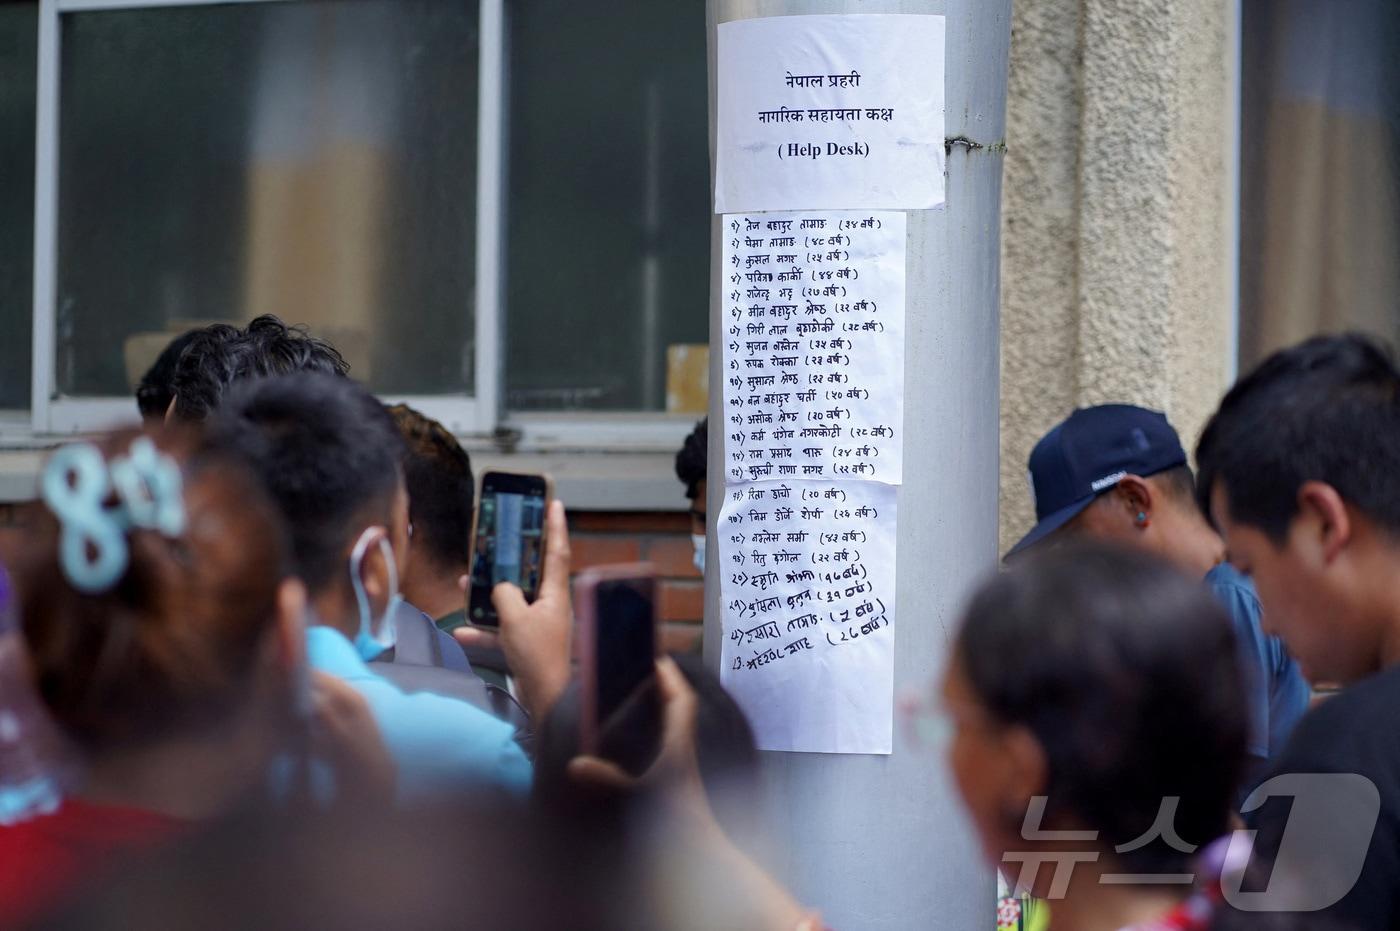 नेपाल प्रहरी
नागरिक सहायता कक्ष
( Help Desk)
१) तेज बहादुर तामाङ (३४ वर्ष)
२) पेमा तामाङ (४८ वर्ष)
३) कुसल मगर (२५ वर्ष)
४) पवित्रा कार्की (४४ वर्ष)
५) राजेन्द्र भट्ट (२७ वर्ष)
६) मीन बहादुर श्रेष्ठ (३२ वर्ष)
७) गिरी लाल बुढाठोकी (३८ वर्ष)
८) सुजन बस्नेत (३५ वर्ष)
९) रुपक रोक्का (२३ वर्ष)
१०) सुसान्त श्रेष्ठ (२२ वर्ष)
११) बल बहादुर घर्ती (५० वर्ष)
१२) असोक श्रेष्ठ (३० वर्ष)
१३) कर्म नगरकोटी (२८ वर्ष)
१४) राम प्रसाद थारु (२४ वर्ष)
१५) सुरुची राणा मगर (२२ वर्ष)
१६) रिता (२० वर्ष)
१७) निम डोर्जे शेर्पा (२६ वर्ष)
१८) शर्मा (४३ वर्ष)
१९) रितु डंगोल (२२ वर्ष)
२०) स्मृति (१७ वर्ष)
२१) (३१ वर्ष)
तामाङ (2 वर्ष)
शाह (26 वर्ष)
뉴스1